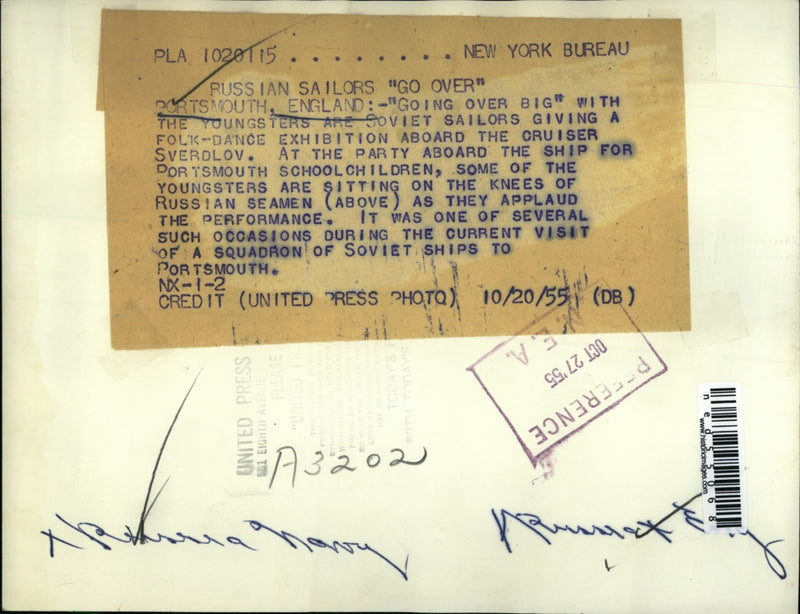 PLA 1020115 . . . . . . . . . NEW YORK BUREAU
RUSSIAN SAILORS "GO OVER"
PORTSMOUTH, ENGLAND:-"GOING OVER BIG" WITH
THE YOUNGSTERS ARE SOVIET SAILORS GIVING A
FOLK-DANCE EXHIBITION ABOARD THE CRUISER
SVERDLOV. AT THE PARTY ABOARD THE SHIP FOR
PORTSMOUTH SCHOOLCHILDREN, SOME OF THE
YOUNGSTERS ARE SITTING ON THE KNEES OF
RUSSIAN SEAMEN (ABOVE) AS THEY APPLAUD
THE PERFORMANCE. IT WAS ONE OF SEVERAL
SUCH OCCASIONS DURING THE CURRENT VISIT
OF A SQUADRON OF SOVIET SHIPS TO
PORTSMOUTH.
NX-1-2
CREDIT (UNITED PRESS PHOTO) 10/20/55 (DB)
UNITED PRESS
EIGHTH AVENUE
PLEASE
TODAY'S
N.E.A.
OCT 27 '55
REFERENCE
A3202
www.historicimages.com
ned55068
X Russia Navy